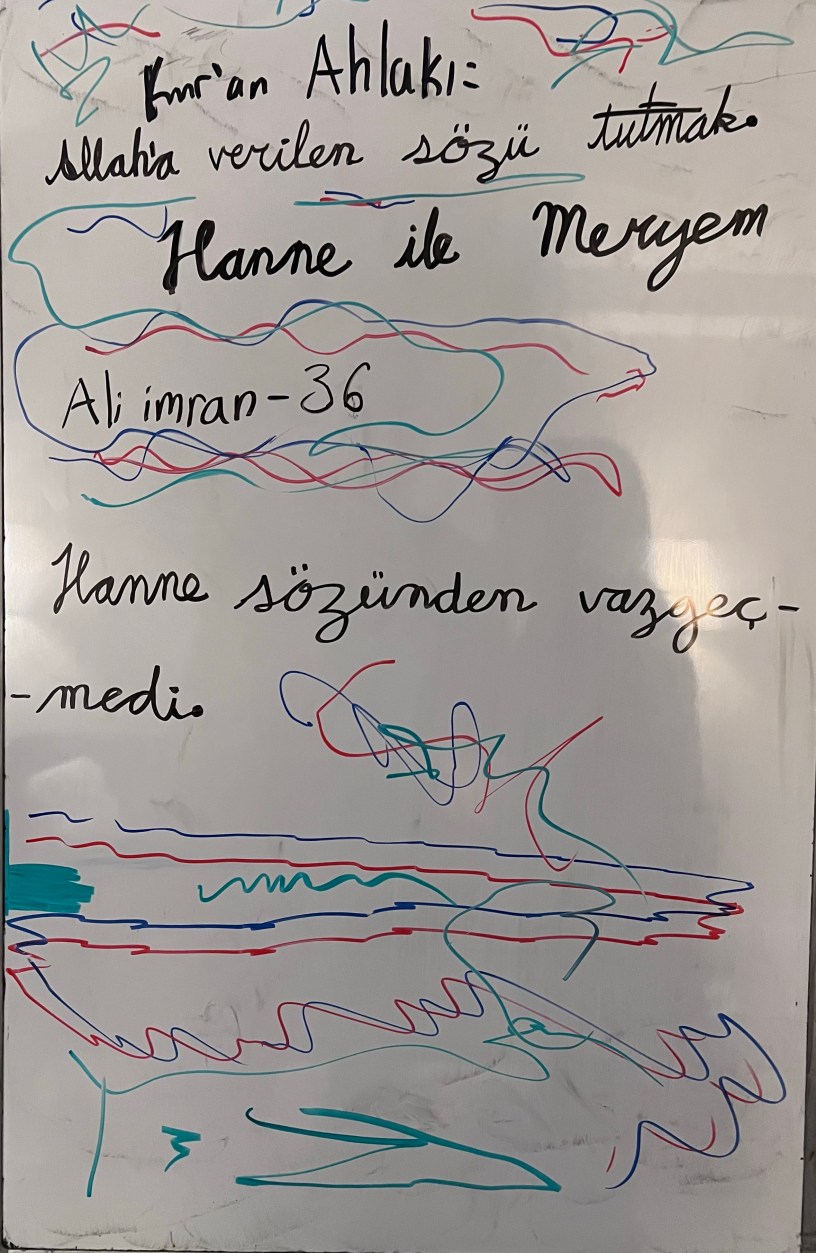 Kur'an Ahlakı:
Allah'a verilen sözü tutmak.
Hanne ile Meryem
Ali imran - 36
Hanne sözünden vazgeç-
-medi.